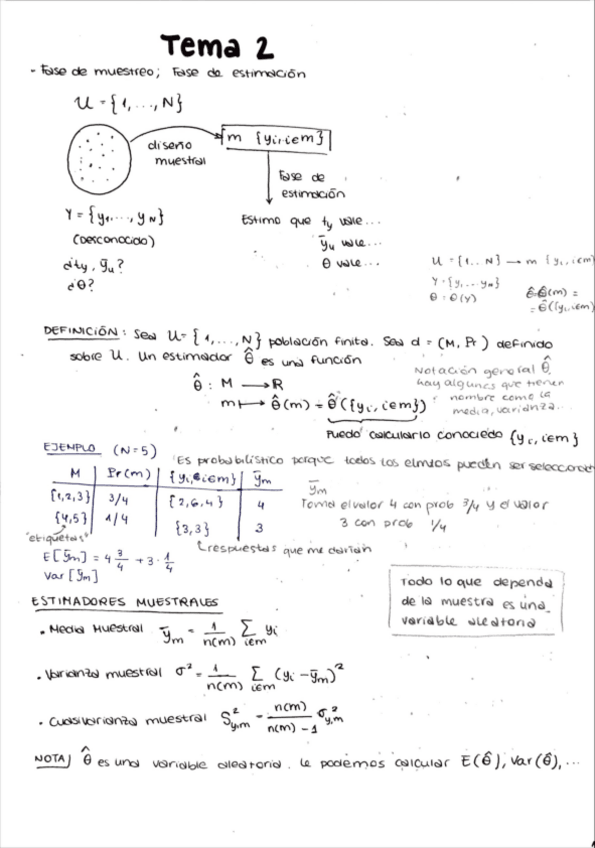 Tema 2
- Fase de muestreo; Fase de estimación
U = {1,...,N}
diseño muestral
m {yi, i∈m}
Fase de estimación
Y = {y1,..., yN}
(Desconocido)
¿ty, ȳu?
¿θ?
Estimo que ty vale...
ȳu vale...
θ vale...
U = {1...N} → m {yi, i∈m}
Y = {y1,...yN}
θ = θ(Y)
θ̂(m) =
= θ̂({yi, i∈m})
DEFINICIÓN: Sea U = {1,...,N} población finita. Sea d = (M, Pr) definido
sobre U. Un estimador θ̂ es una función
θ̂ : M → R
m ↦ θ̂(m) = θ̂({yi, i∈m})
Puedo calcularlo conociedo {yi, i∈m}
Notación general θ̂,
hay algunos que tienen
nombre como la
media, varianza...
EJEMPLO (N=5)
Es probabilístico porque todos los elmtos pueden ser seleccionad
M | Pr(m) | {yi, i∈m} | ȳm
{1,2,3} | 3/4 | {2,6,4} | 4
{4,5} | 1/4 | {3,3} | 3
"etiquetas"
respuestas que me darían
ȳm
Toma el valor 4 con prob 3/4 y el valor
3 con prob 1/4
E[ȳm] = 4 3/4 + 3·1/4
Var[ȳm]
Todo lo que dependa
de la muestra es una
variable aleatoria
ESTIMADORES MUESTRALES
• Media Muestral ȳm = 1/n(m) Σ i∈m yi
• Varianza muestral σ² = 1/n(m) Σ i∈m (yi - ȳm)²
• Cuasivarianza muestral S²y,m = n(m)/(n(m) - 1) σ²y,m
NOTA) θ̂ es una variable aleatoria. Le podemos calcular E(θ̂), Var(θ̂), ...